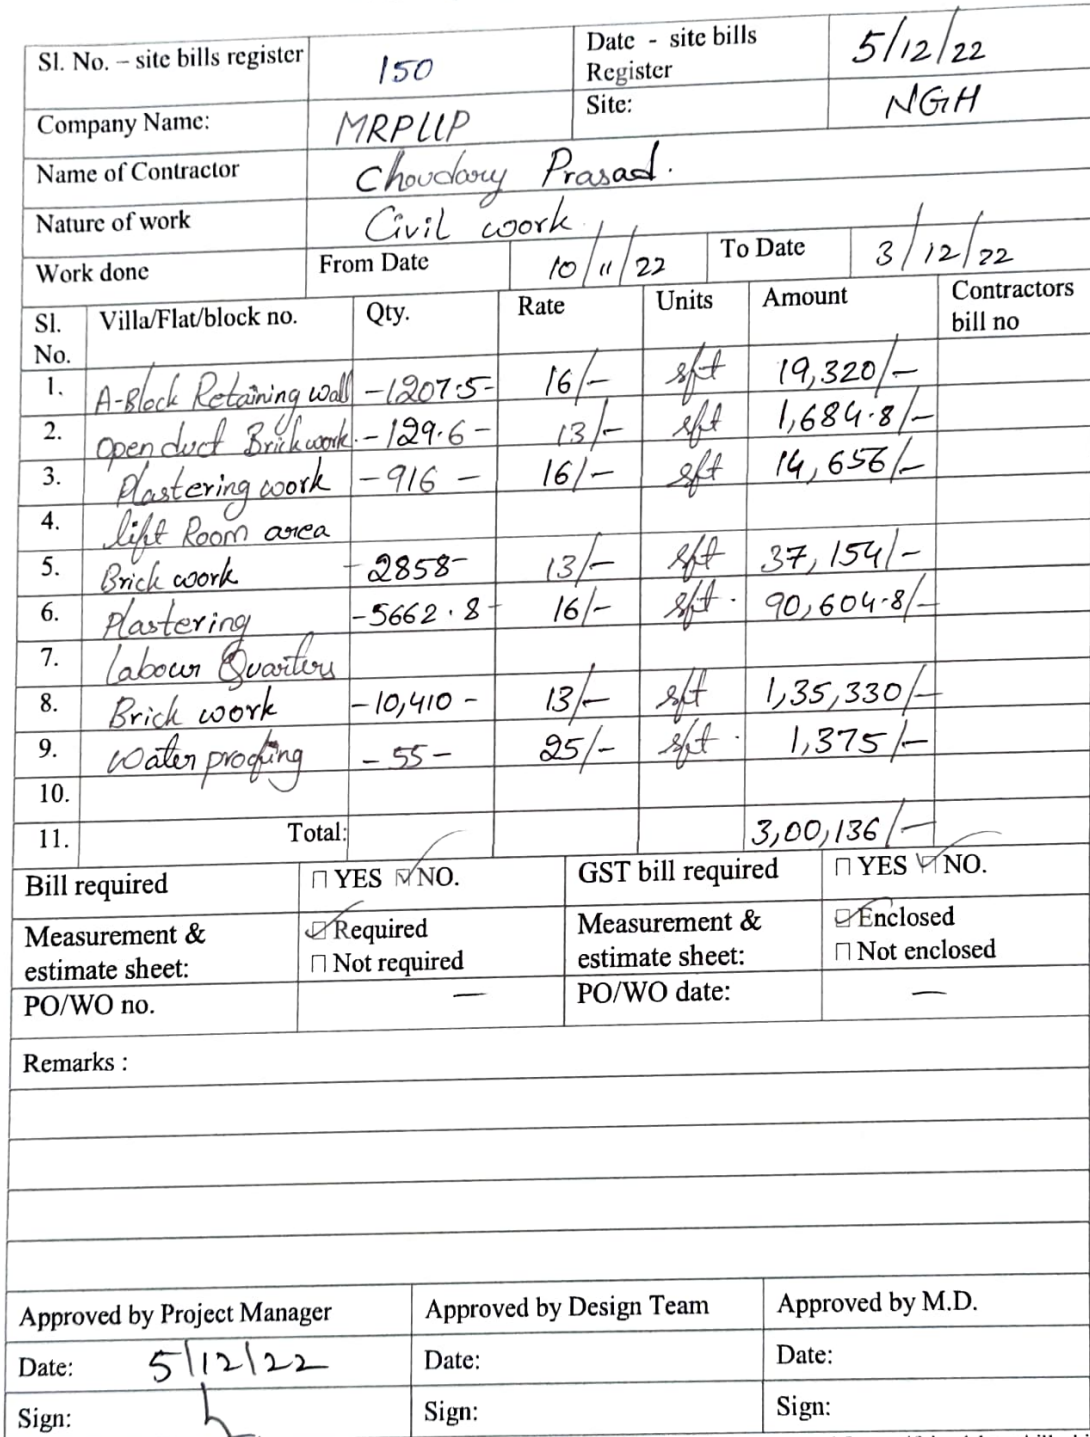 Sl. No. – site bills register 150 Date - site bills Register 5/12/22
Company Name: MRPLLP Site: NGH
Name of Contractor Choudary Prasad.
Nature of work Civil work
Work done From Date 10/11/22 To Date 3/12/22
Sl. No. Villa/Flat/block no. Qty. Rate Units Amount Contractors bill no
1. A-Block Retaining wall -1207.5- 16/- sft 19,320/-
2. open duct Brick work. -129.6- 13/- sft 1,684.8/-
3. Plastering work -916- 16/- sft 14,656/-
4. lift Room area
5. Brick work -2858- 13/- sft 37,154/-
6. Plastering -5662.8- 16/- sft. 90,604.8/-
7. Labour Quarters
8. Brick work -10,410- 13/- sft 1,35,330/-
9. Water proofing -55- 25/- sft. 1,375/-
10.
11. Total: 3,00,136/-
Bill required ☐ YES ☑ NO. GST bill required ☐ YES ☑ NO.
Measurement & estimate sheet: ☑ Required ☐ Not required Measurement & estimate sheet: ☑ Enclosed ☐ Not enclosed
PO/WO no. — PO/WO date: —
Remarks :
Approved by Project Manager Approved by Design Team Approved by M.D.
Date: 5/12/22 Date: Date:
Sign: Sign: Sign: